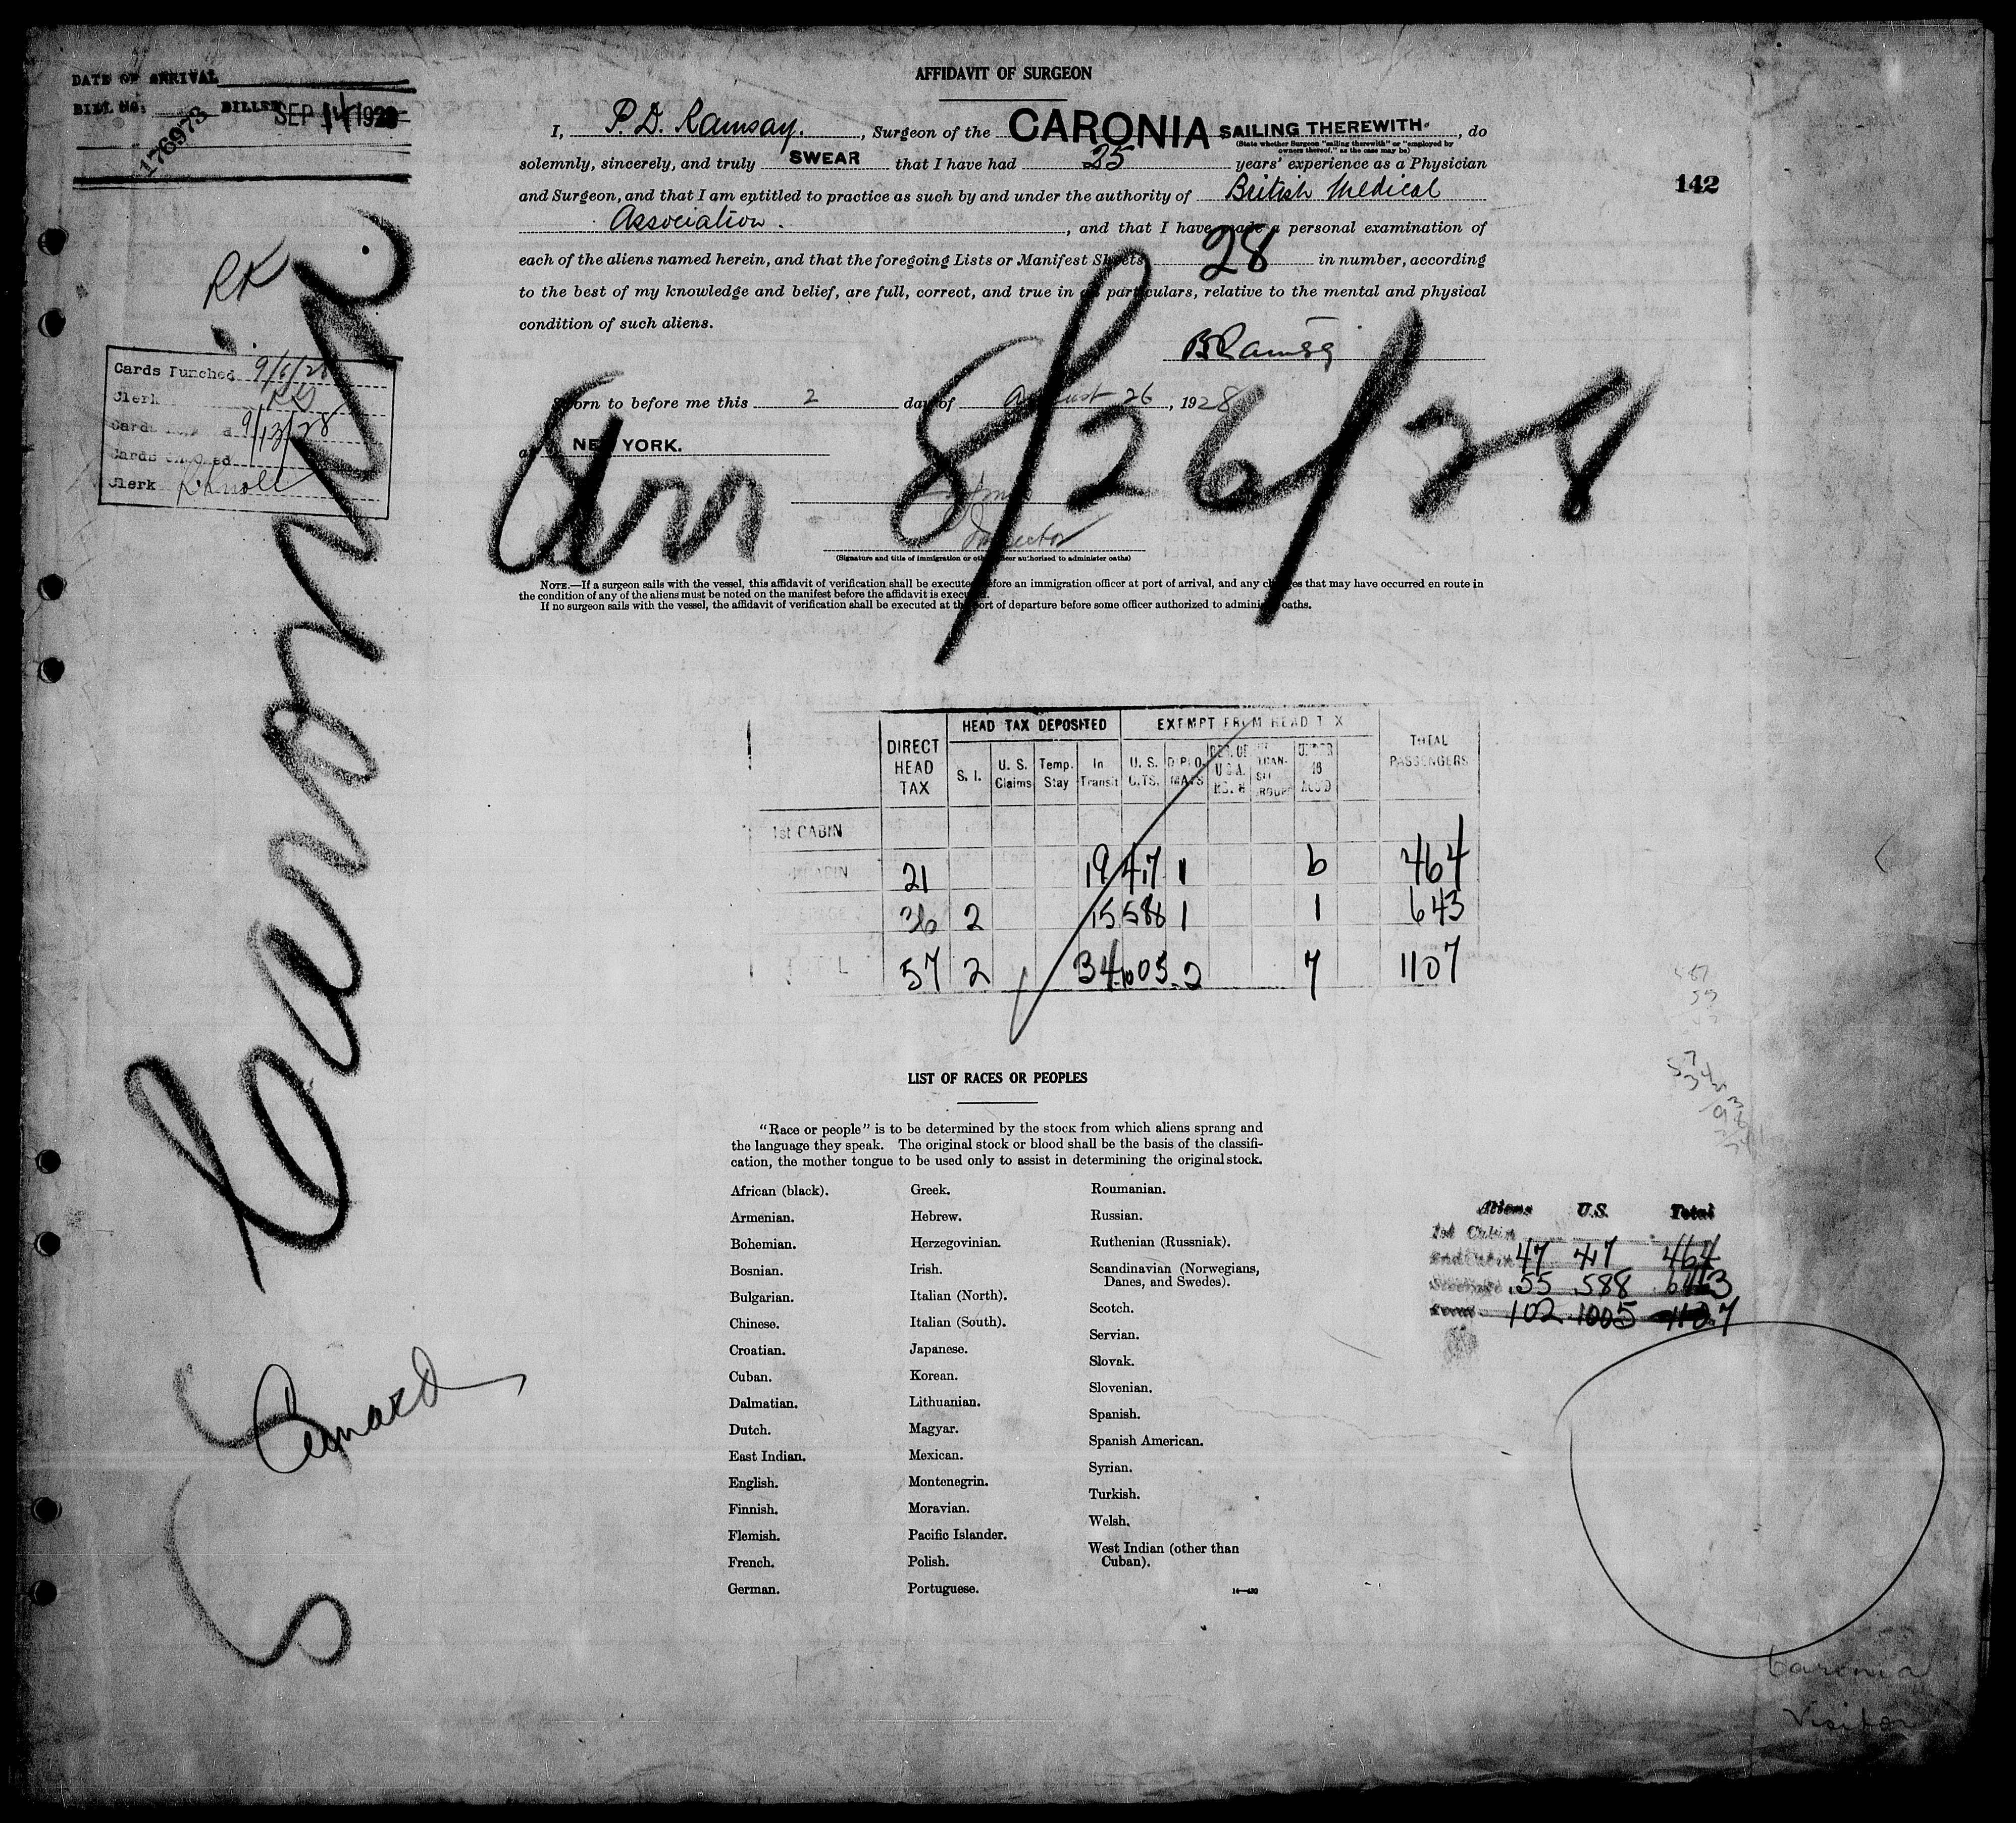 DATE OF ARRIVAL
BILL NO. BILLED SEP 14 1928
176973
AFFIDAVIT OF SURGEON
I, P. D. Ramsay. , Surgeon of the CARONIA SAILING THEREWITH. , do
(State whether Surgeon "sailing therewith" or "employed by
owners thereof," as the case may be)
solemnly, sincerely, and truly SWEAR that I have had 25 years' experience as a Physician
and Surgeon, and that I am entitled to practice as such by and under the authority of British Medical
Association. , and that I have made a personal examination of
each of the aliens named herein, and that the foregoing Lists or Manifest Sheets 28 in number, according
to the best of my knowledge and belief, are full, correct, and true in all particulars, relative to the mental and physical
condition of such aliens.
142
Sworn to before me this 2 day of August 26, 1928
at NEW YORK.
Inspector
(Signature and title of immigration or other officer authorized to administer oaths)
NOTE.—If a surgeon sails with the vessel, this affidavit of verification shall be executed before an immigration officer at port of arrival, and any changes that may have occurred en route in
the condition of any of the aliens must be noted on the manifest before the affidavit is executed.
If no surgeon sails with the vessel, the affidavit of verification shall be executed at the port of departure before some officer authorized to administer oaths.
Arr 8/26/28
Caronia
RK
Cards Punched 9/6/28
Clerk RK
Cards 9/13/28
Cards
Clerk R Knoll
HEAD TAX DEPOSITED EXEMPT FROM HEAD TAX
DIRECT HEAD TAX S. I. U. S. Claims Temp. Stay In Transit U. S. CITS. DIPLOMATS UNDER 16 ACC'D TOTAL PASSENGERS
1st CABIN
CABIN 21 19 417 1 6 464
36 2 15 588 1 1 643
TOTAL 57 2 34 1005 2 7 1107
LIST OF RACES OR PEOPLES
"Race or people" is to be determined by the stock from which aliens sprang and
the language they speak. The original stock or blood shall be the basis of the classifi-
cation, the mother tongue to be used only to assist in determining the original stock.
African (black). Greek. Roumanian.
Armenian. Hebrew. Russian.
Bohemian. Herzegovinian. Ruthenian (Russniak).
Bosnian. Irish. Scandinavian (Norwegians,
Danes, and Swedes).
Bulgarian. Italian (North). Scotch.
Chinese. Italian (South). Servian.
Croatian. Japanese. Slovak.
Cuban. Korean. Slovenian.
Dalmatian. Lithuanian. Spanish.
Dutch. Magyar. Spanish American.
East Indian. Mexican. Syrian.
English. Montenegrin. Turkish.
Finnish. Moravian. Welsh.
Flemish. Pacific Islander. West Indian (other than
Cuban).
French. Polish.
German. Portuguese.
14—430
Aliens U.S. Total
1st Cabin
2nd Cabin 47 417 464
Steerage 55 588 643
Total 102 1005 1107
Caronia
Visitor